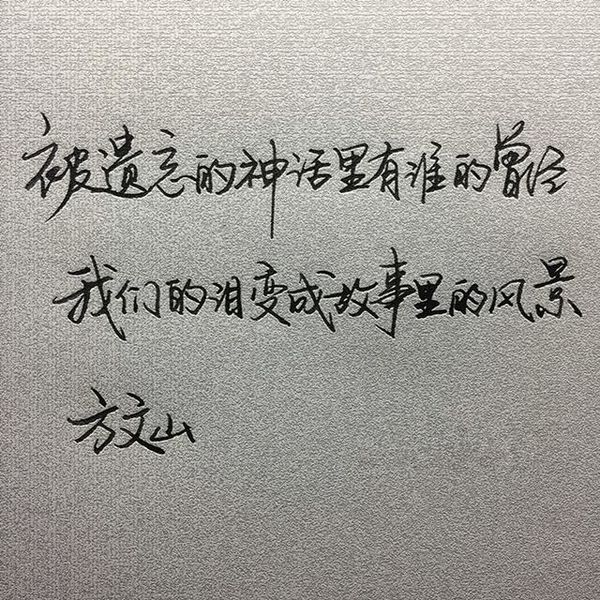 被遗忘的神话里有谁的曾经
我们的泪变成故事里的风景
方文山